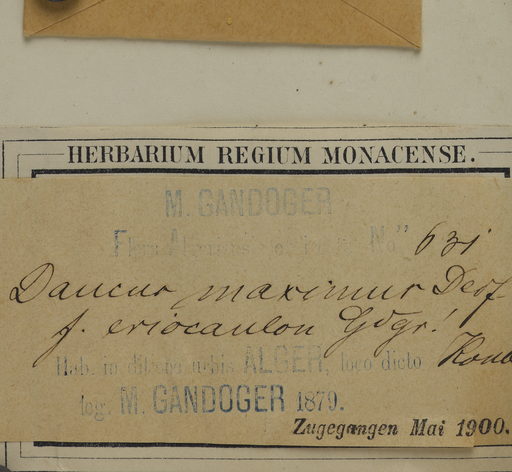 HERBARIUM REGIUM MONACENSE.
M. GANDOGER
No 631
Daucus maximus Desf
f. eriocaulon Gdgr!
Hab. in urbis ALGER, loco dicto Kouba
leg. M. GANDOGER 1879.
Zugegangen Mai 1900.